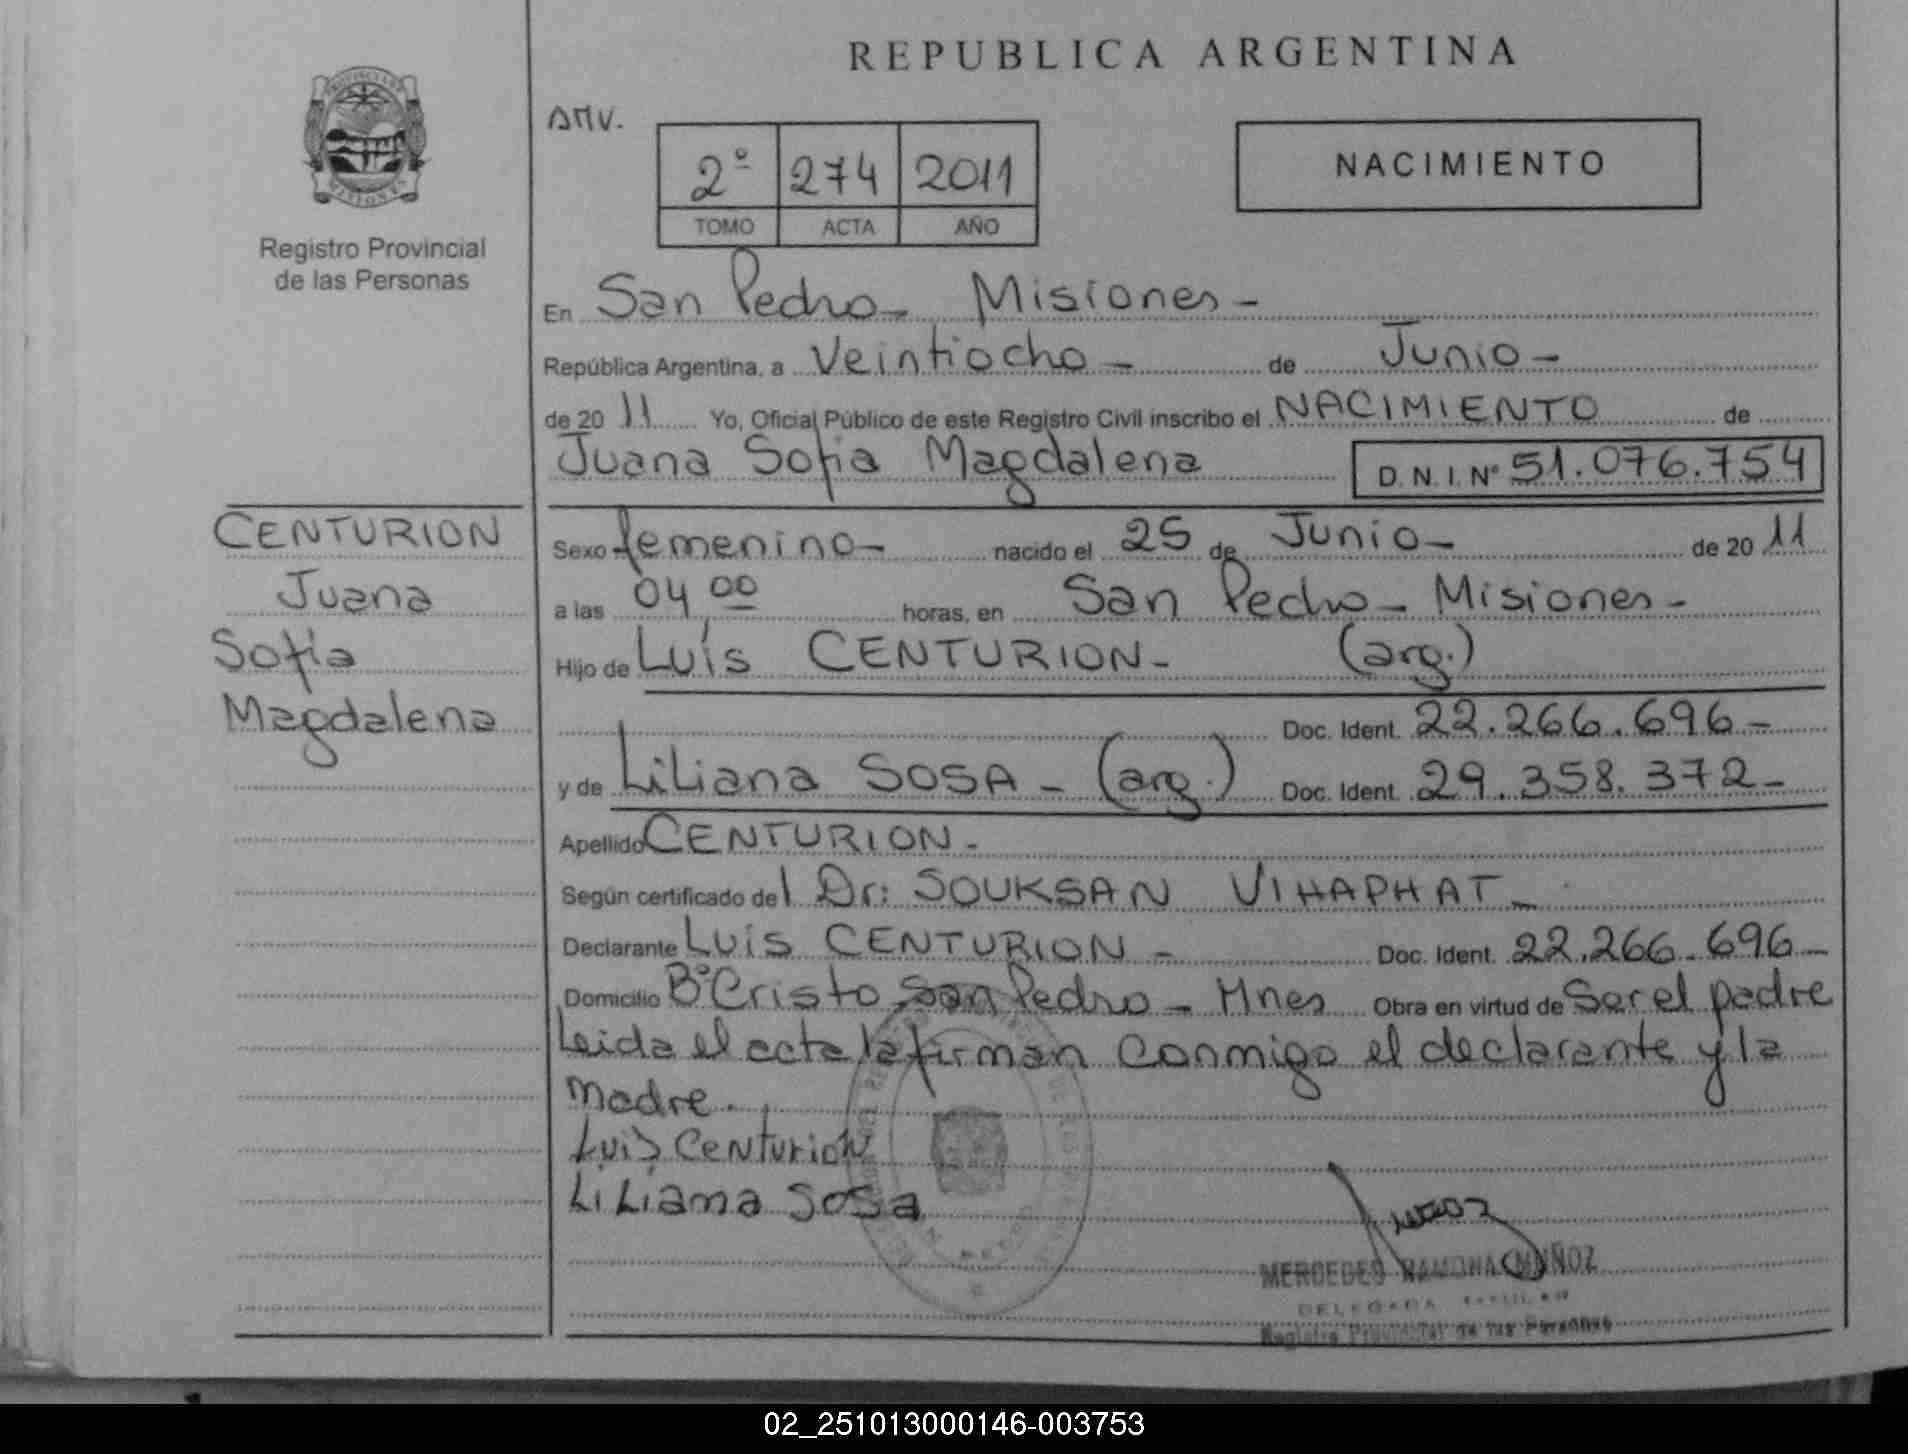 REPUBLICA ARGENTINA
AMV.
2º 274 2011
TOMO ACTA AÑO
NACIMIENTO
Registro Provincial
de las Personas
En San Pedro - Misiones -
República Argentina, a Veintiocho - de Junio -
de 20 11 Yo, Oficial Público de este Registro Civil inscribo el NACIMIENTO de
Juana Sofia Magdalena D. N. I. Nº 51.076.754
CENTURION
Juana
Sofia
Magdalena
Sexo femenino - nacido el 25 de Junio - de 20 11
a las 04 00 horas, en San Pedro - Misiones -
Hijo de Luís CENTURION - (arg.)
Doc. Ident. 22.266.696 -
y de Liliana SOSA - (arg.) Doc. Ident. 29.358.372 -
Apellido CENTURION -
Según certificado del Dr: SOUKSAN VIHAPHAT -
Declarante Luis CENTURION - Doc. Ident. 22.266.696 -
Domicilio Bº Cristo San Pedro - Mnes Obra en virtud de Ser el padre
Leida el acta la firman conmigo el declarante y la
madre.
Luis Centurion
LiLiana Sosa
MERCEDES RAMONA MUÑOZ
DELEGADA TITULAR
Registro Provincial de las Personas
02_251013000146-003753